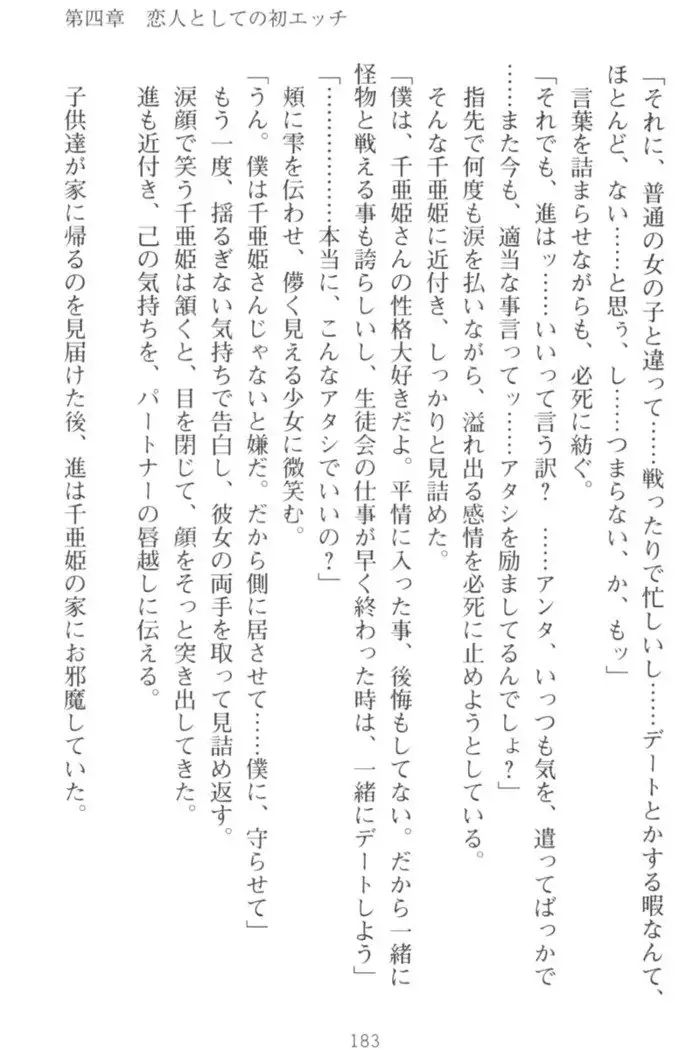 第四章　恋人としての初エッチ
「それに、普通の女の子と違って……戦ったりで忙しいし……デートとかする暇なんて、
ほとんど、ない……と思ぅ、し……つまらない、か、もッ」
言葉を詰まらせながらも、必死に紡ぐ。
「それでも、進はッ……いいって言う訳？　……アンタ、いっつも気を、遣ってばっかで
……また今も、適当な事言ってッ……アタシを励ましてるんでしょ？」
指先で何度も涙を払いながら、溢れ出る感情を必死に止めようとしている。
そんな千亜姫に近付き、しっかりと見詰めた。
「僕は、千亜姫さんの性格大好きだよ。平情に入った事、後悔もしてない。だから一緒に
怪物と戦える事も誇らしいし、生徒会の仕事が早く終わった時は、一緒にデートしよう」
「………………本当に、こんなアタシでいいの？」
頬に雫を伝わせ、儚く見える少女に微笑む。
「うん。僕は千亜姫さんじゃないと嫌だ。だから側に居させて……僕に、守らせて」
もう一度、揺るぎない気持ちで告白し、彼女の両手を取って見詰め返す。
涙顔で笑う千亜姫は頷くと、目を閉じて、顔をそっと突き出してきた。
進も近付き、己の気持ちを、パートナーの唇越しに伝える。
子供達が家に帰るのを見届けた後、進は千亜姫の家にお邪魔していた。
183